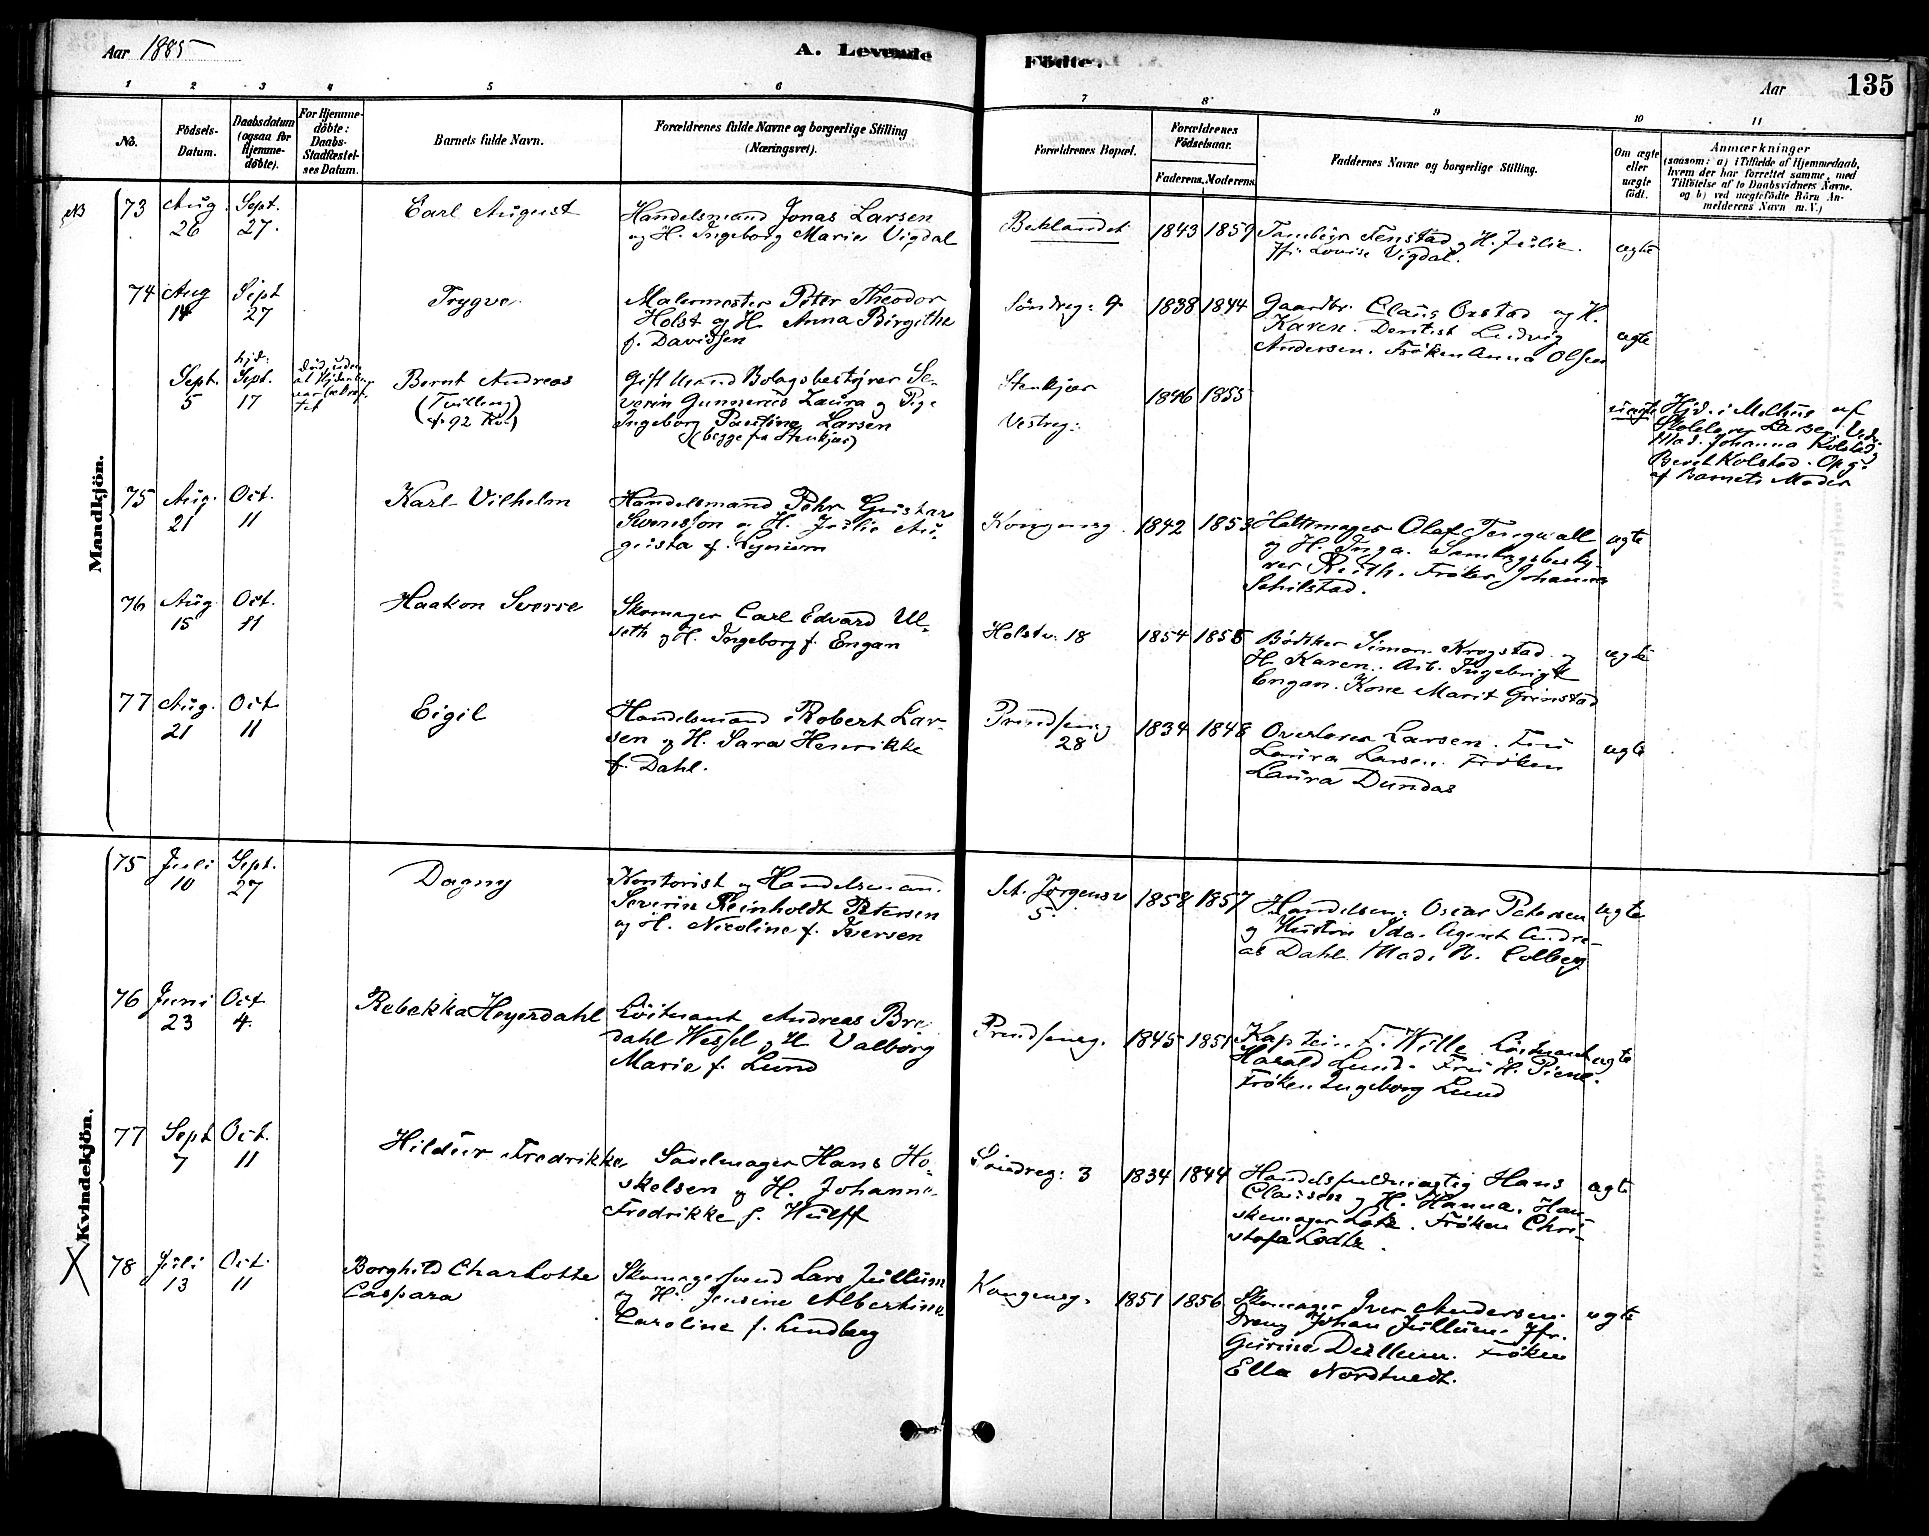 Aar 1885
A. Levende
Födte.
Aar
135
1 2 3 4 5 6 7 8 9 10 11
No.
Födsels-
Datum.
Daabsdatum
(ogsaa for
Hjemme-
döbte).
For Hjemme-
döbte:
Daabs-
Stadfæstel-
ses Datum.
Barnets fulde Navn.
Forældrenes fulde Navne og borgerlige Stilling
(Næringsvei).
Forældrenes Bopæl.
Forældrenes
Födselsaar.
Faderens. Moderens.
Faddernes Navne og borgerlige Stilling.
Om ægte
eller
uægte
födt.
Anmærkninger
(saasom: a) i Tilfælde af Hjemmedaab,
hvem der har forrettet samme, med
Tilföielse af to Daabsvidners Navne.
og b) ved uægtefödte Börn An-
melderens Navn m. V.)
Mandkjön.
NB
73
Aug.
26
Sept.
27.
Carl August
Handelsmand Jonas Larsen
og H. Ingeborg Marie Vigdal
Baklandet
1843 1859
Fenstad og H. Julie.
Jfr. Lovise Vigdal.
ægte
74
Aug
14
Sept
27
Trygve
Malermester Peter Theodor
Holst og H. Anna Birgithe
f. Davidsen
Söndreg: 9
1838 1844
Gaardbr. Claus Oustad og H.
Karen. Dentist Ludvig
Andersen. Frøken Anna Olsen
ægte
Sept.
5
hjd:
Sept.
17
Død, uden
at Hjdaaben
var bekræf-
tet
Bernt Andreas
(Tvilling)
Gift Mand Bolagsbestyrer Se-
verin Gunnerius Laura og Pige
Ingeborg Pauline Larsen
(begge fra Stenkjær)
Stenkjær
Vestreg:
1846 1855
uægte
Hjd. i Melhus af
Larsen. Vidn.
Mad. Johanna Kolstad,
Berit Kolstad. Opg.
af Barnets Moder
75
Aug.
21
Oct.
11
Karl Vilhelm
Handelsmand Pehr Gustav
Svensson og H. Julie Au-
gusta f. Lynum
Kongensg.
1842 1853
Hattemager Olaf Tengwall
og H. Inga. Samlagsbesty-
rer Reith. Frøken Johanna
Schilstad.
ægte
76
Aug
15
Oct.
11
Haakon Sverre
Skomager Carl Edvard Ul-
seth og H. Ingeborg f. Engan
Holstv: 18
1854 1858
Bødtker Simon Krogstad og
H. Karen. Arb. Ingebrigt
Engan. Kone Marit Grinstad
ægte
77
Aug.
21
Oct
11
Eigil
Handelsmand Robert Lar-
sen og H. Sara Henrikke
f. Dahl.
Prindsensg
28
1834 1848
Overlærer Larsen. Fru
Laura Larsen. Frøken
Laura Dundas
ægte
Kvindekjön.
75
Juli
10
Sept.
27
Dagny
Kontorist og Handelsmann.
Severin Reinholdt Petersen
og H. Nicoline f. Iversen
St. Jørgensv
5.
1858 1857
Handelsm: Oscar Petersen
og Hustru Ida. Agent Andre-
as Dahl. Mad. N. Colberg
ægte
76
Juni
23
Oct
4.
Rebekka Heyerdahl
Löitnant Andreas Bre-
dahl Wessel og H Valborg
Marie f. Lund
Prindsensg.
1845 1851
Kaptein F. Wille. Löitnant
Harald Lund. Fru H. Piene.
Frøken Ingeborg Lund
ægte
77
Sept
7
Oct.
11
Hildur Fredrikke
Sadelmager Hans Ho-
skelsen og H. Johanne
Fredrikke f. Wulff
Söndreg: 3
1834 1844
Handelsfuldmægtig Hans
Clausen og H. Hanna. Han-
skemager Lotz. Frøken Chri-
stofa Lodtz.
ægte
78
Juli
13
Oct.
11
Borghild Charlotte
Caspara
Skomagersvend Lars Jullum
og H. Jensine Albertine
Caroline f. Lundberg
Kongensg.
1851 1856
Skomager Iver Andersen.
Dreng Johan Jullum. Jfr.
Gurine Dullum. Frøken
Ella Nordtvedt.
ægte